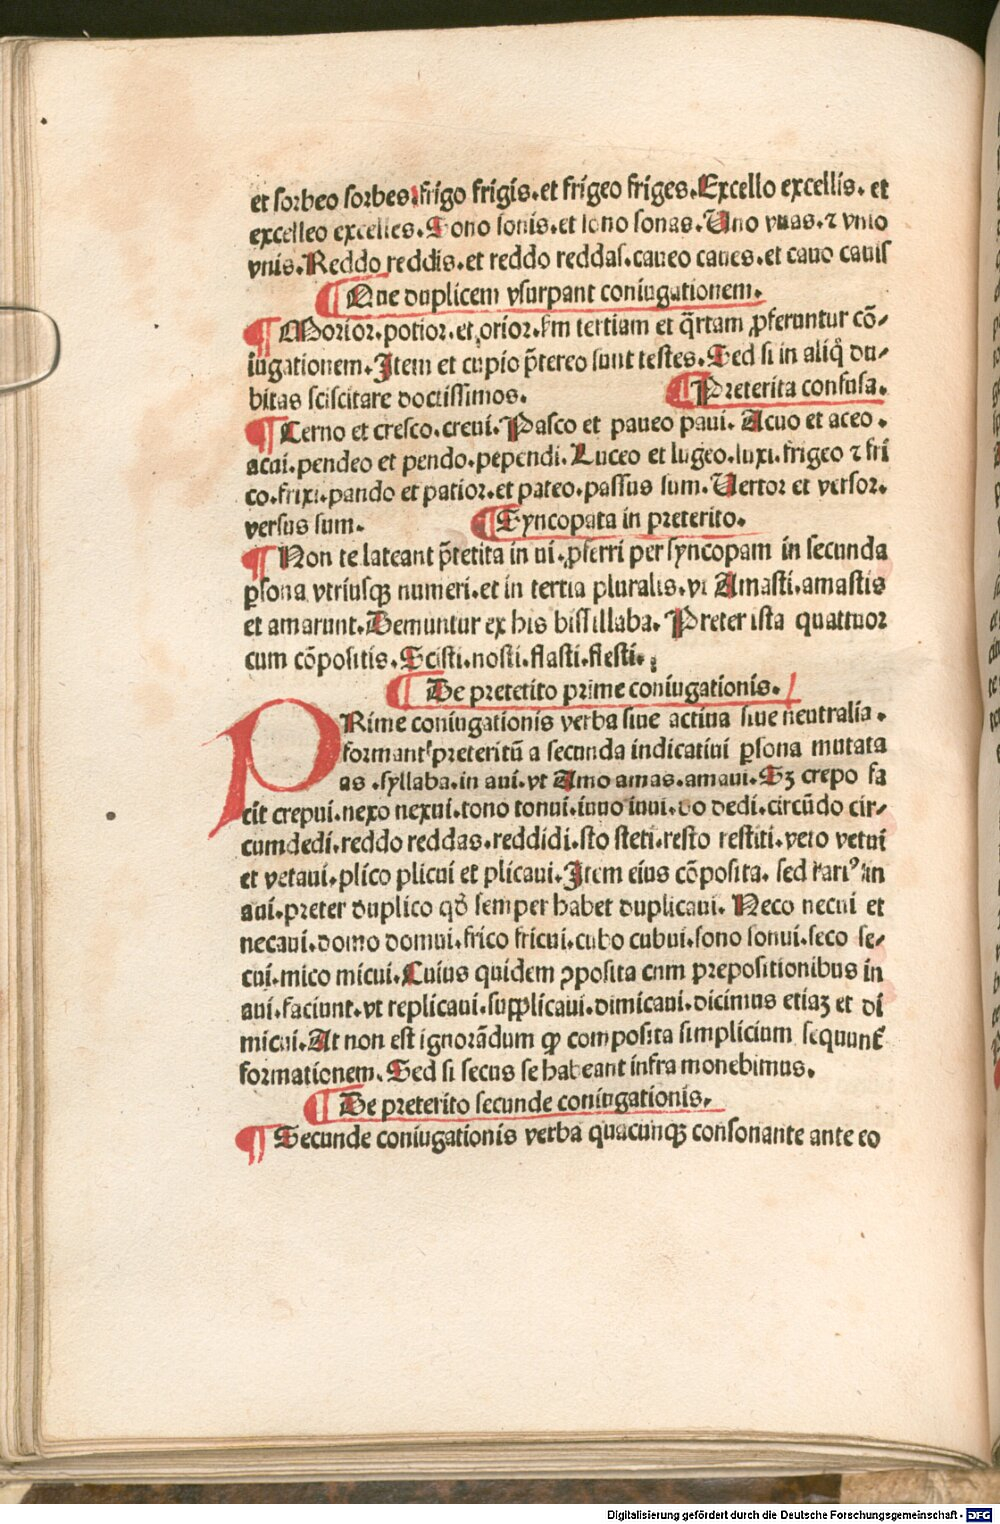 et sorbeo sorbes.frigo frigis.et frigeo friges.Excello excellis. et
excelleo excelles.Sono sonis.et sono sonas.Uno vnas.⁊ vnio
vnis.Reddo reddis.et reddo reddas.caueo caues.et cauo cauis
¶ Que duplicem vsurpant coniugationem.
¶ Morior.potior.et orior.ẜm tertiam et q̈rtam ꝓferuntur cō/
iugationem.Item et cupio p̄tereo sunt testes.Sed si in aliq̊ du/
bitas sciscitare doctissimos. ¶ Preterita confusa.
¶ Cerno et cresco.creui.Pasco et paueo paui. Acuo et aceo.
acui.pendeo et pendo.pependi.Luceo et lugeo.luxi.frigeo ⁊ fri
co.frixi.pando et patior.et pateo.passus sum.Uertor et versor.
versus sum. ¶ Syncopata in preterito.
¶ Non te lateant p̄tetita in ui.ꝓferri per syncopam in secunda
ꝑsona vtriusqꝫ numeri.et in tertia pluralis.vt Amasti.amastis
et amarunt.Demuntur ex his bissillaba. Preter ista quattuor
cum cōpositis.Scisti.nosti.flasti.flesti.
¶ De pretetito prime coniugationis.
PRime coniugationis verba siue actiua siue neutralia.
formantʳ preteritū a secunda indicatiui ꝑsona mutata
as.syllaba.in aui.vt Amo amas.amaui.Sꝫ crepo fa
cit crepui.nexo nexui.tono tonui.iuuo iuui.do dedi.circūdo cir/
cumdedi.reddo reddas.reddidi.sto steti.resto restiti.veto vetui
et vetaui.plico plicui et plicaui.Item eius cōposita. sed rariꝰ in
aui.preter duplico qd̄ semper habet duplicaui. Neco necui et
necaui.domo domui.frico fricui.cubo cubui.sono sonui.seco se/
cui.mico micui.Cuius quidem ꝯposita cum prepositionibus in
aui.faciunt.vt replicaui.supplicaui.dimicaui.dicimus etiaꝫ et di
micui.At non est ignorādum ꝙ composita simplicium sequunt᷑
formationem.Sed si secus se habeant infra monebimus.
¶ De preterito secunde coniugationis.
¶ Secunde coniugationis verba quacunqꝫ consonante ante eo
Digitalisierung gefördert durch die Deutsche Forschungsgemeinschaft - DFG